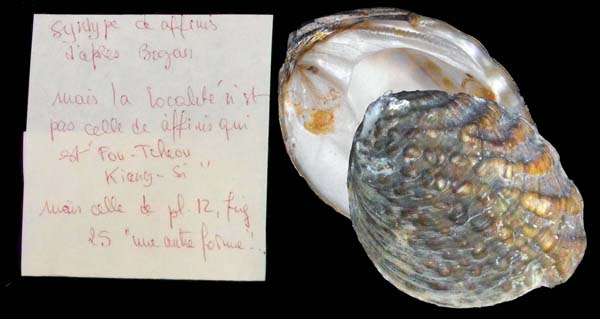 Syntype de affinis
d'après Bogan
mais la localité n'est
pas celle de affinis qui
est "Fou-Tcheou
Kiang-Si"
mais celle de pl. 12, fig
25 "une autre forme".